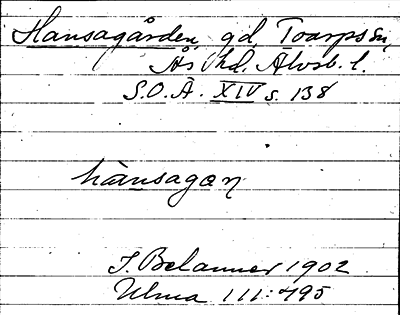 Hansagården, gd, Toarps sn,
Ås hd. Älvsb. l.
S.O.Ä. XIV s. 138
hànsagaɳ
J. Belanner 1902
Ulma 111:495